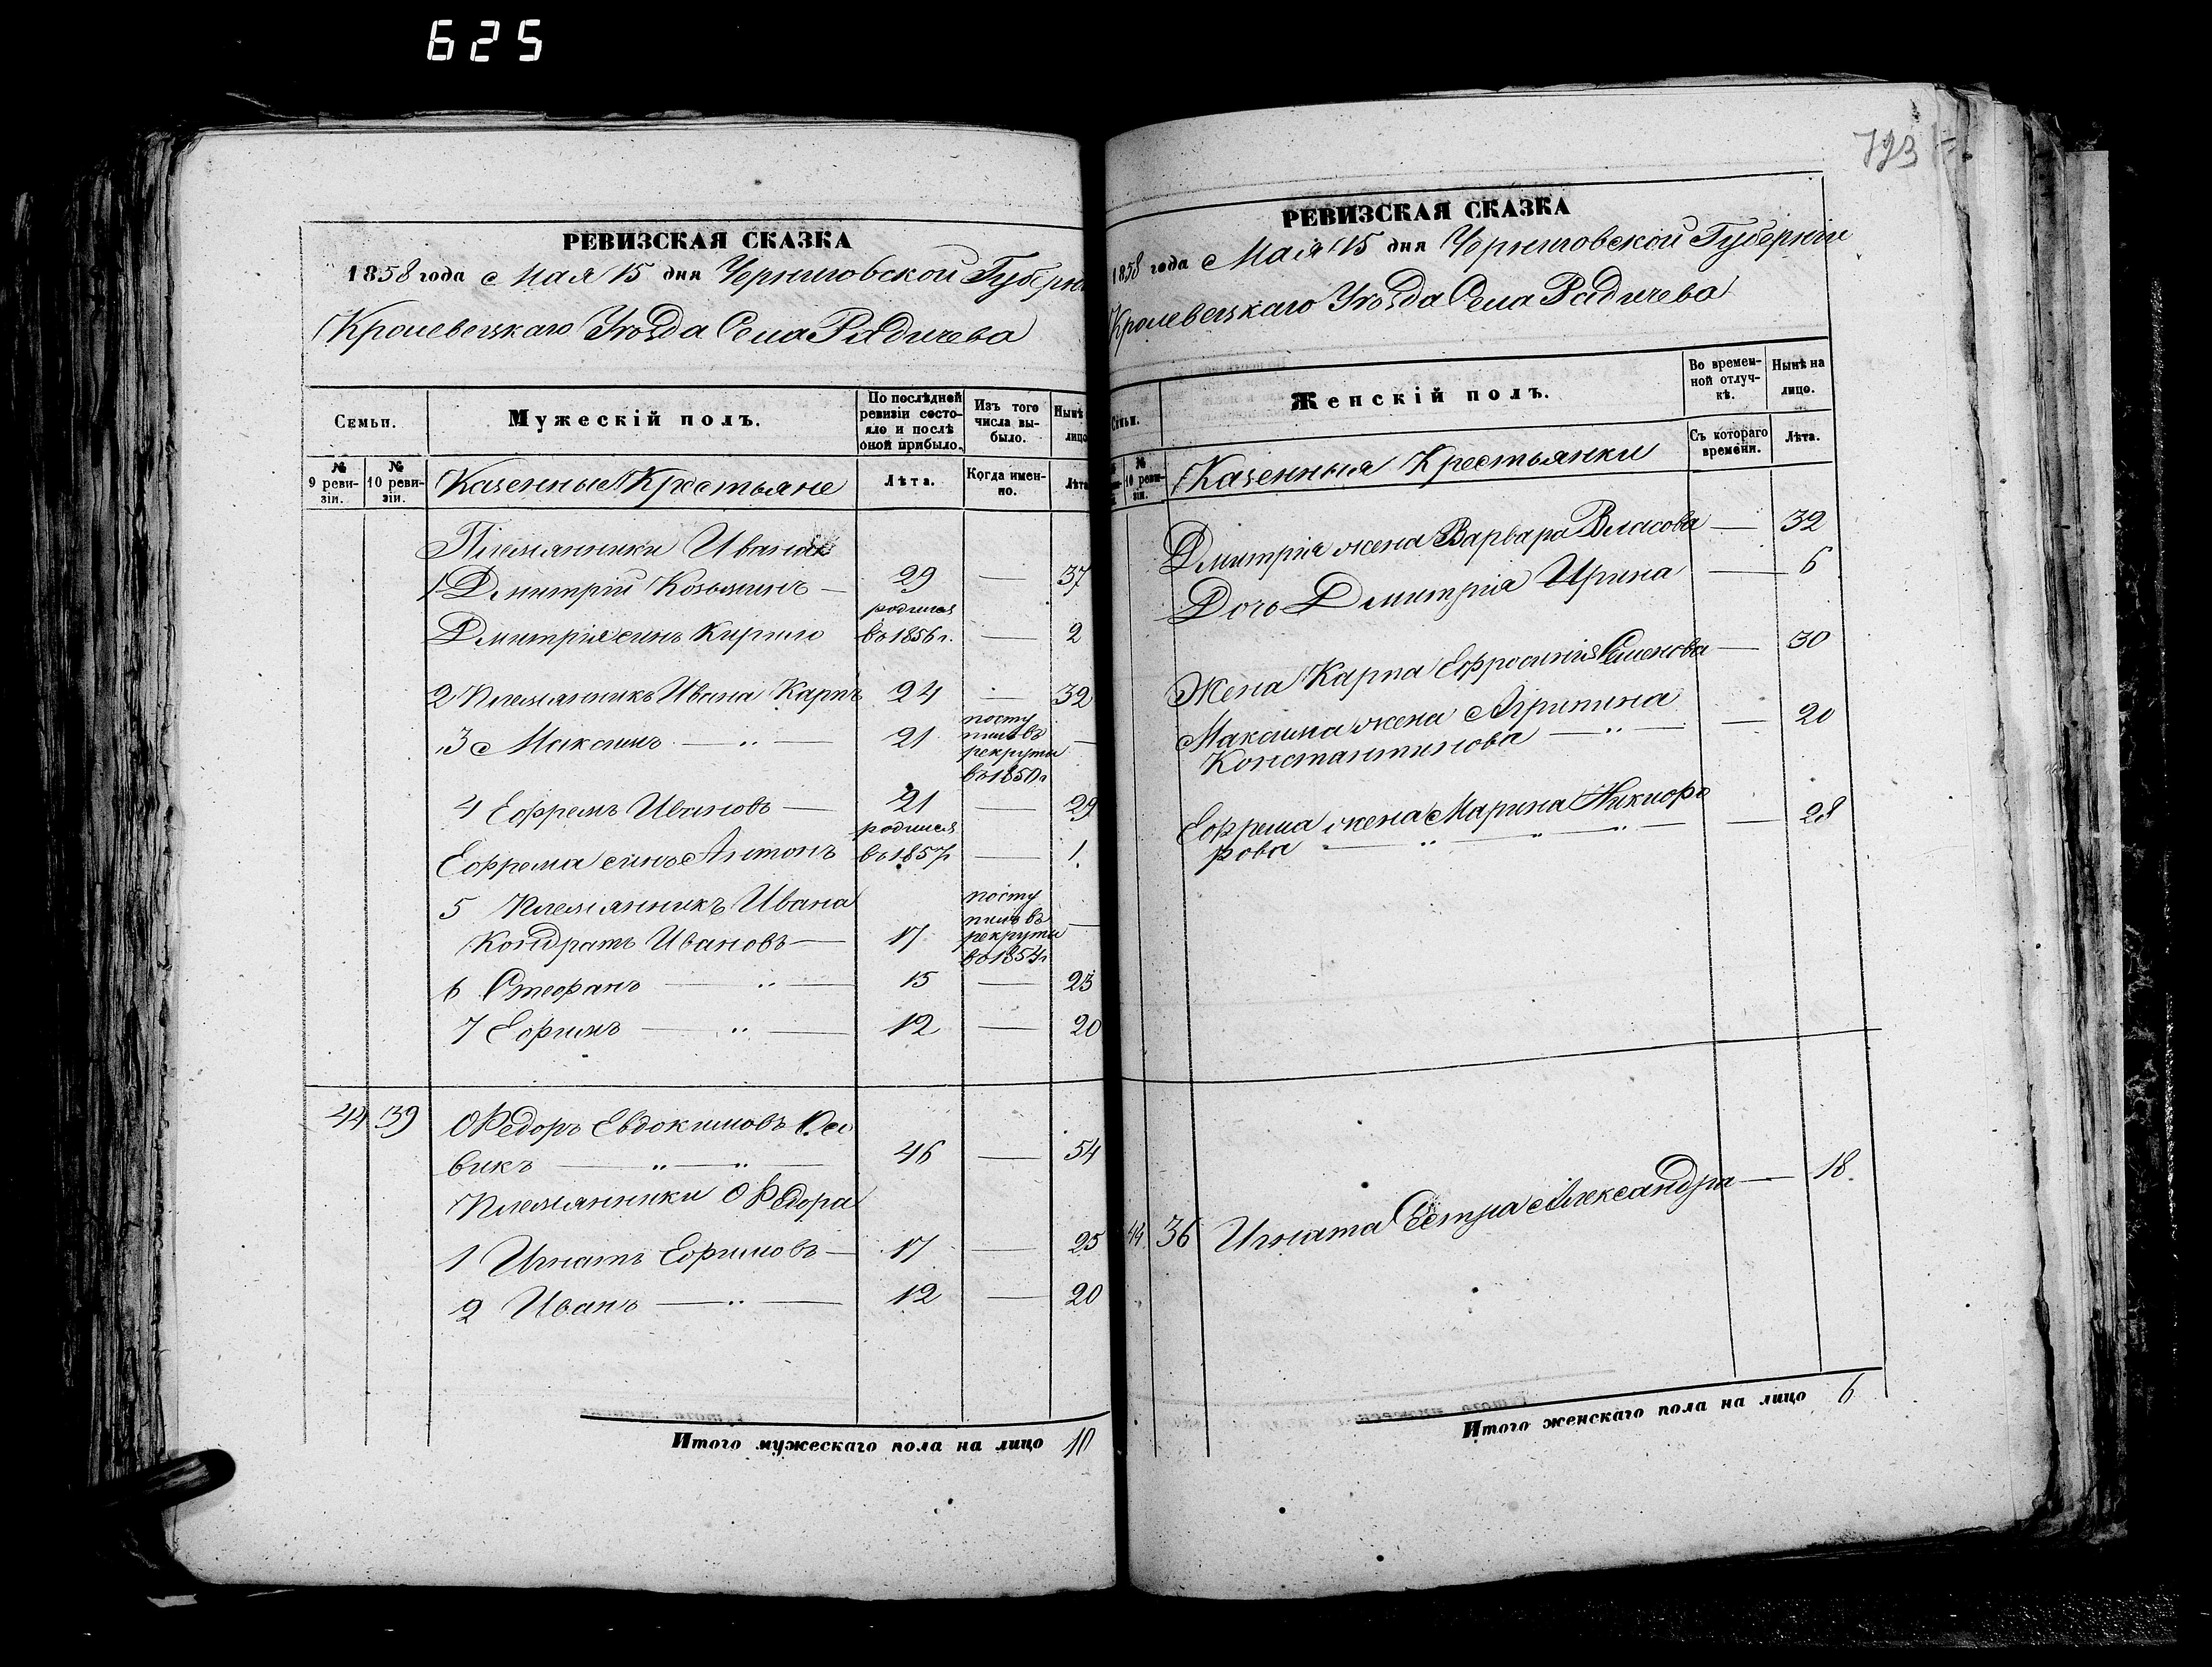 625
РЕВИЗСКАЯ СКАЗКА
1858 года Мая 15 дня Черниговской Губерн
Кролевецкаго Уѣзда Села Радичева
Семьи.
Мужескій полъ.
По послѣдней ревизіи состояло и послѣ оной прибыло.
Изъ того числа выбыло.
Нынѣ
лицо
№ 9 ревизіи.
№ 10 ревизіи.
Казенные Крестьяне
Лѣта.
Когда именно.
Лѣта
Племянники Ивана
1 Дмитрій Козьминъ — 29 — 37
родился
Дмитрія сынъ Кирило въ 1856 г. — 2
2 Племянникъ Ивана Карпъ 24 — 32
3 Максимъ — „ — 21 посту
пилъ въ
рекруты —
въ 1850 г
4 Ефремъ Ивановъ — 21 — 29
родился
Ефрема сынъ Антонъ въ 1857 г — 1
5 Племянникъ Ивана
Кондратъ Ивановъ — 17 посту
пилъ въ
рекруты —
въ 1854 г
6 Стефанъ — „ — 15 — 23
7 Ефимъ — „ — 12 — 20
44 39 Ѳедоръ Евдокимовъ
викъ — „ — „ — 46 — 54
Племянники Ѳедора
1 Игнатъ Ефимовъ — 17 — 25
2 Иванъ — „ — 12 — 20
Итого мужескаго пола на лицо 10
793
РЕВИЗСКАЯ СКАЗКА
1858 года Мая 15 дня Черниговской Губерніи
Кролевецкаго Уѣзда Села Радичева
Семьи.
Женскій полъ.
Во временной отлучкѣ.
Нынѣ на лицо.
№ 10 ревизіи.
Казенныя Крестьянки
Съ котораго времени.
Лѣта.
Дмитрія жена Варвара Власова — 32
Дочь Дмитрія Ирина — 6
Жена Карпа Ефросинія Семенова — 30
Максима жена Агрипина
Константинова — „ — — 20
Ефрема жена Марина Никифо
рова — „ — „ — — 28
44 36 Игната Сестра Александра — 18
Итого женскаго пола на лицо 6